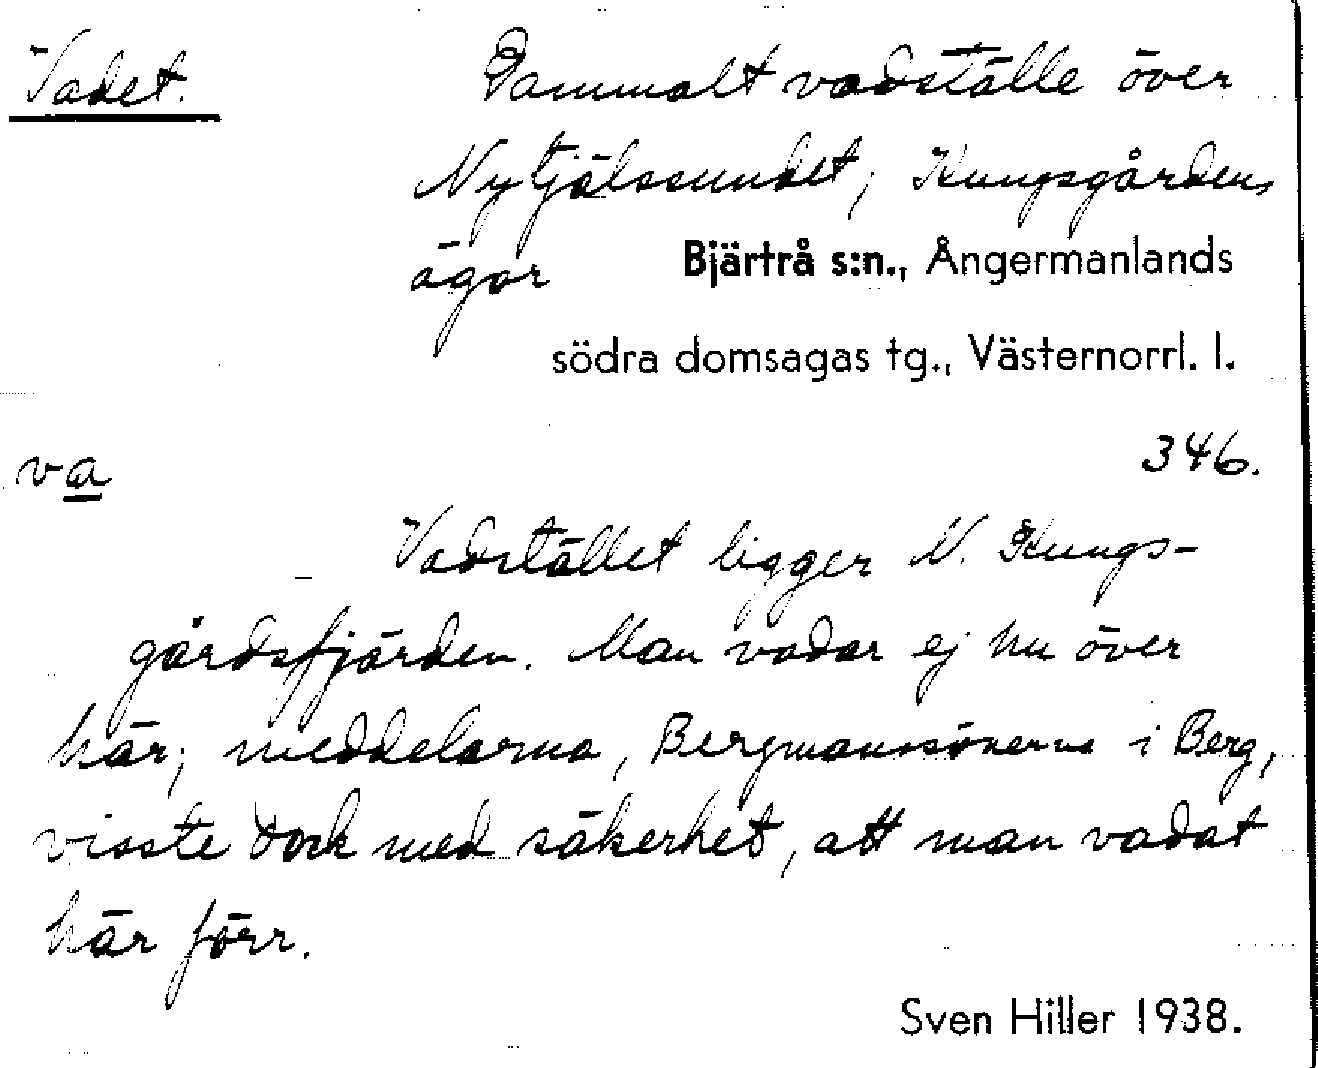 Vadet.
Gammalt vadställe över
Nytjälssundet; Kungsgårdens
ägor
Bjärtrå s:n., Ångermanlands
södra domsagas tg., Västernorrl. l.
va
346.
Vadstället ligger N. Kungs-
gårdsfjärden. Man vadar ej nu över
här; meddelarna, Bergmanssönerna i Berg,
visste dock med säkerhet, att man vadat
här förr.
Sven Hiller 1938.